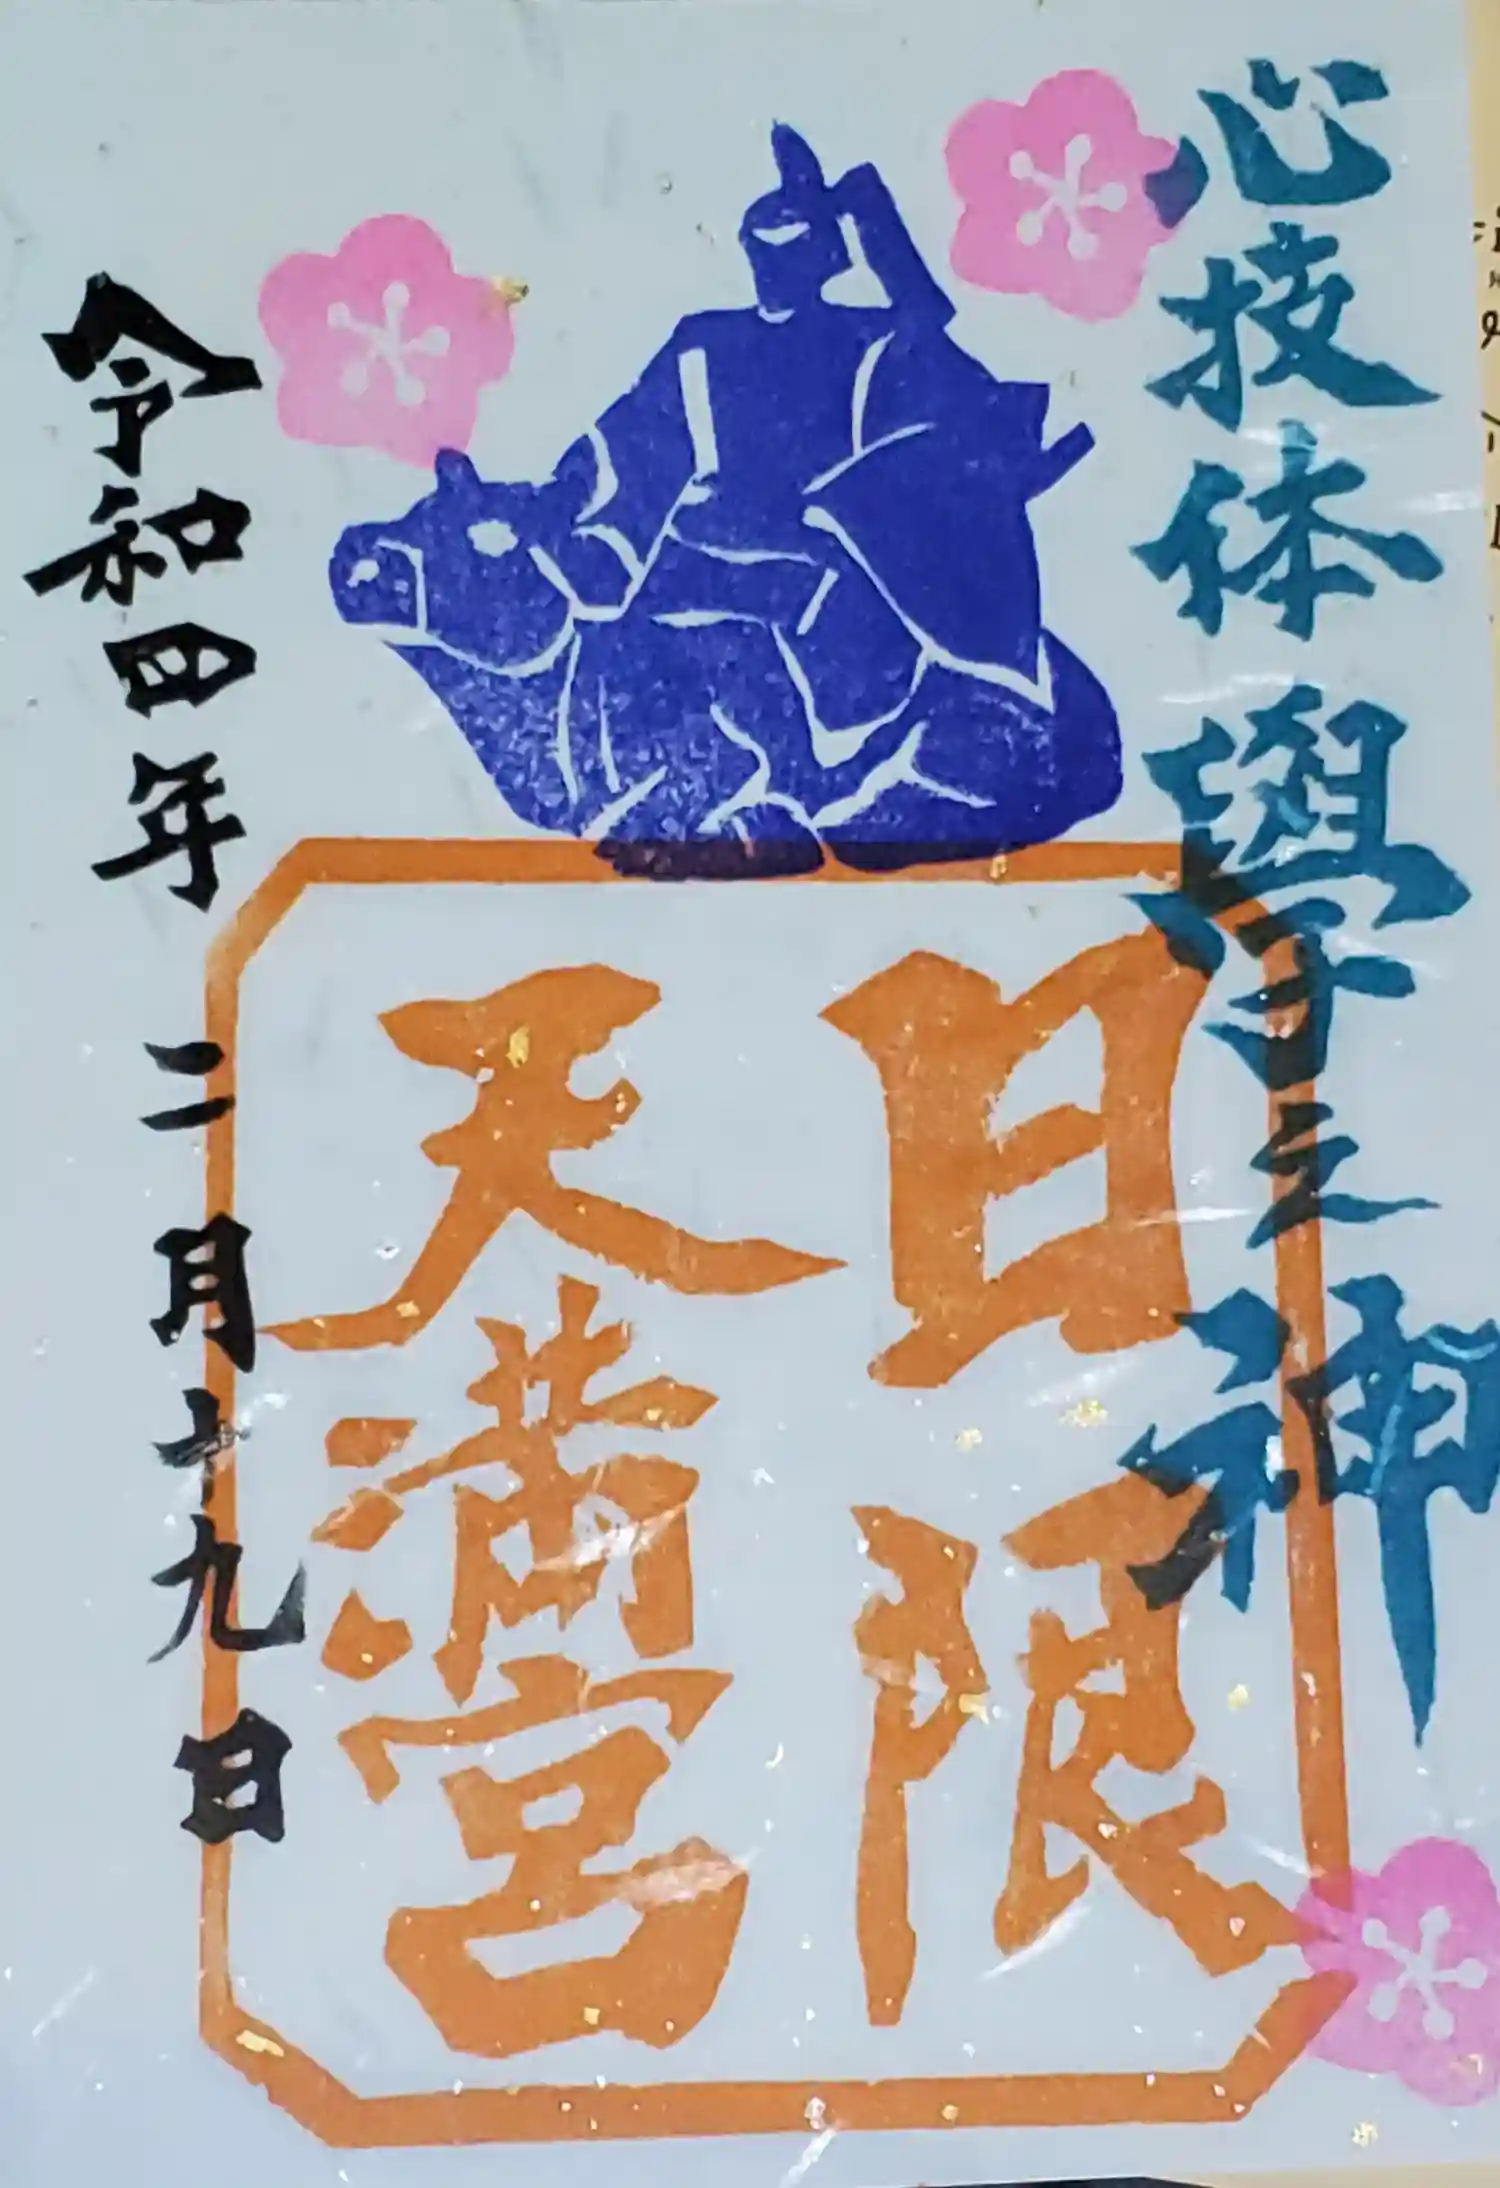 心技体學之神
日限
天満宮
令和四年二月十九日